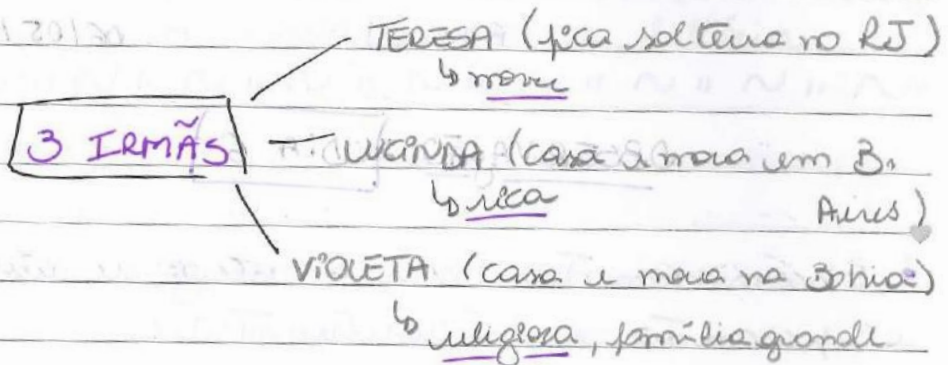 TERESA (fica solteira no RJ)
↳ morre
3 IRMÃS
LUCINDA (casa e mora em B.
↳ rica Aires)
VIOLETA (casa e mora na Bahia)
↳ religiosa, família grande